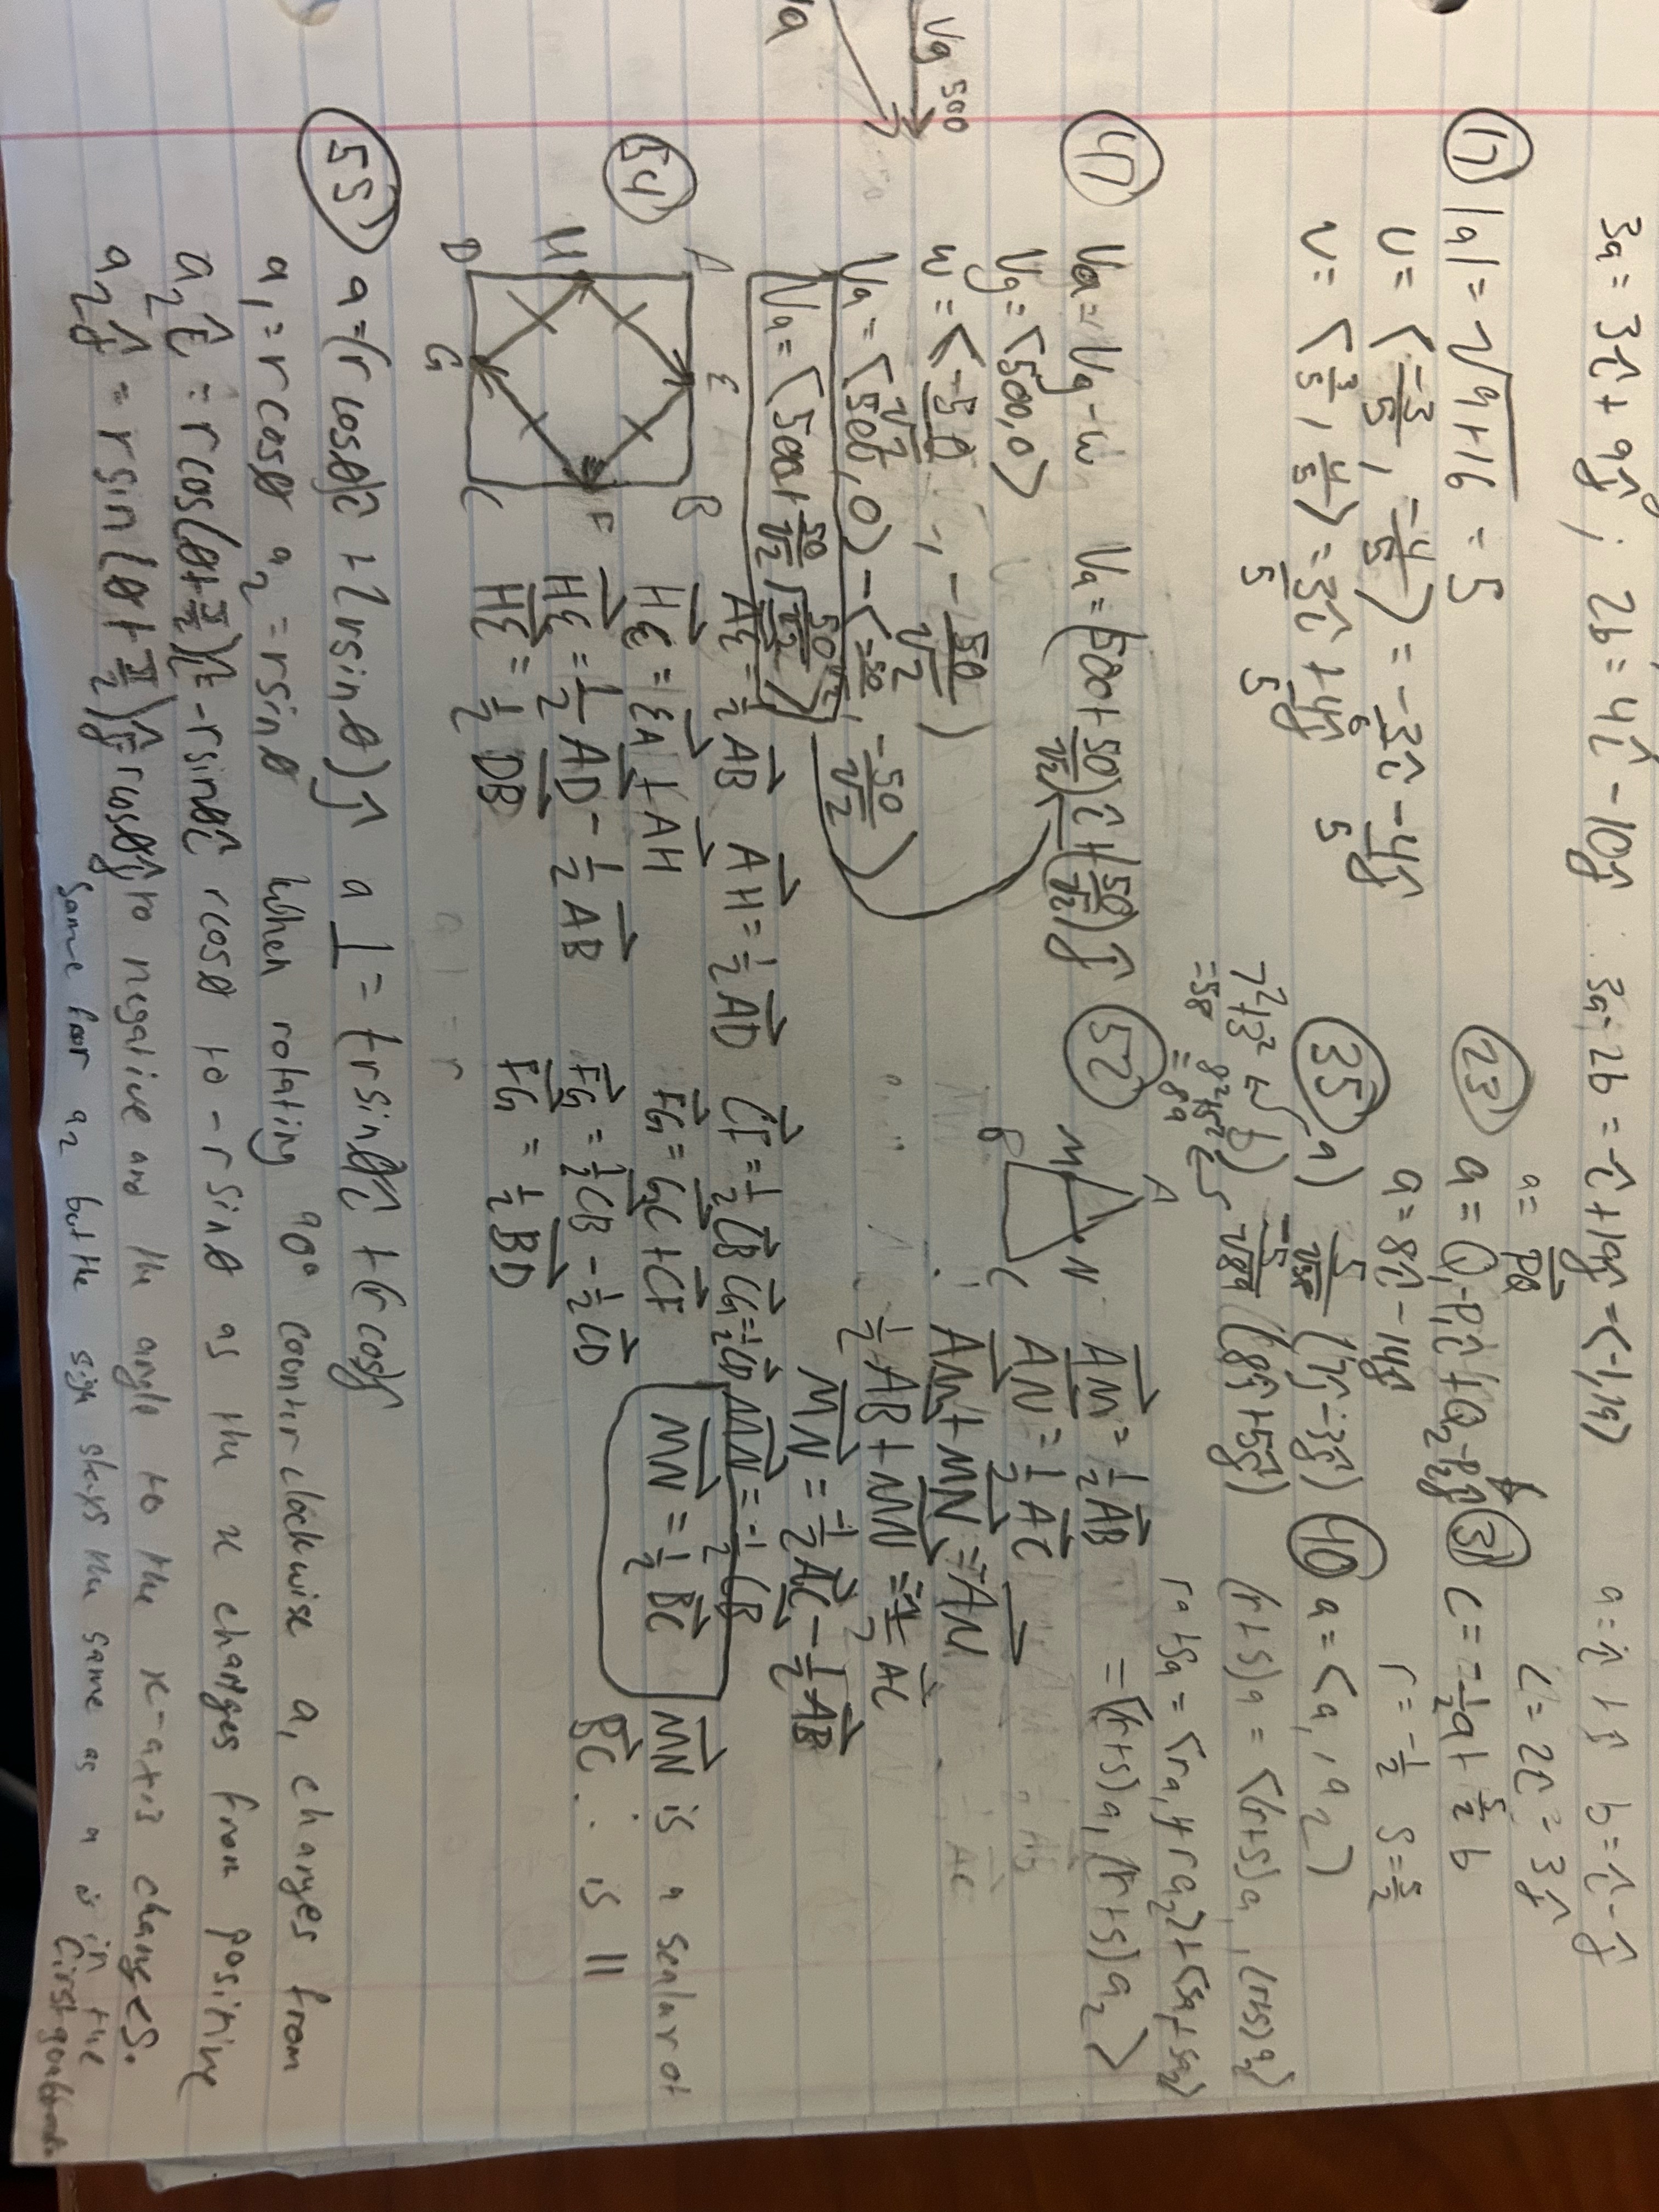 3a = 3î + 9ĵ ; 2b = 4î - 10ĵ 3a - 2b = -î + 19ĵ = <-1, 19>
a = î + ĵ b = î - ĵ
c = 2î - 3ĵ
17 |a| = √9+16 = 5
u = <-3/5, -4/5> = -3î/5 - 4ĵ/5
v = <3/5, 4/5> = 3î/5 + 4ĵ/5
a = PQ
23 a = Q1-P1î + Q2-P2ĵ
a = 8î - 14ĵ
31 c = -1/2a + 5/2 b
r = -1/2 s = 5/2
35 a) 5/√58 (7î - 3ĵ)
b) -5/√89 (8î + 5ĵ)
7²+3² = 58
8²+5² = 89
40 a = <a1, a2>
(r+s)a = <(r+s)a1, (r+s)a2>
ra + sa = <ra1 + ra2> + <sa1 + sa2>
= <(r+s)a1, (r+s)a2>
Vg 500
Va
47 Va = Vg - w Va = (500 + 50/√2)î + (50/√2)ĵ
Vg = <500, 0>
w = <-50/√2, -50/√2>
Va = <500, 0> - <-50/√2, -50/√2>
Va = <500 + 50/√2, 50/√2>
52 A
M N
B C
AM = 1/2 AB
AN = 1/2 AC
AM + MN = AN
1/2 AB + MN = 1/2 AC
MN = 1/2 AC - 1/2 AB
MN = -1/2 CB
MN = 1/2 BC
MN is a scalar of
BC ∴ is ||
54 A E B
H F
D G C
AE = 1/2 AB AH = 1/2 AD
HE = EA + AH
HE = 1/2 AD - 1/2 AB
HE = 1/2 DB
CF = 1/2 CB CG = 1/2 CD
FG = GC + CF
FG = 1/2 CB - 1/2 CD
FG = 1/2 BD
55 a = (r cosθ)î + (r sinθ)ĵ a⊥ = (r sinθ)î + (r cosĵ
a1 = r cosθ a2 = r sinθ when rotating 90° counter clockwise a1 changes from
a2î = r cos(θ + π/2)î - r sinθî r cosθ to - r sinθ as the x changes from positive
a2ĵ = r sin(θ + π/2)ĵ r cosθĵ to negative and the angle to the x-axis changes.
Same for a2 but the sign stays the same as a is in the
first quadtrant.